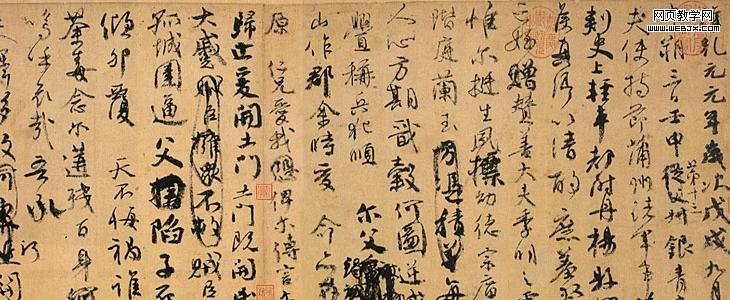 网页教学网
www.webjx.com
乾元元年歲次戊戌九月
朔三日壬申第十三從父銀青
夫使持節蒲州諸軍事
刺史上輕車都尉丹楊縣
侯真卿以清酌庶羞祭
亡姪贈贊善大夫季明之
惟爾挺生夙標幼德宗廟
階庭蘭玉方憑積善每
人心方期戩穀何圖逆賊
釁稱兵犯順爾父
山作郡余時受命亦
原仁兄愛我俾爾傳言
歸止爰開土門土門既開
大蹙賊臣擁眾不救賊臣
孤城圍逼父陷子死
傾卵覆天不悔禍誰
荼毒念爾遘殘百身
嗚呼哀哉吾承